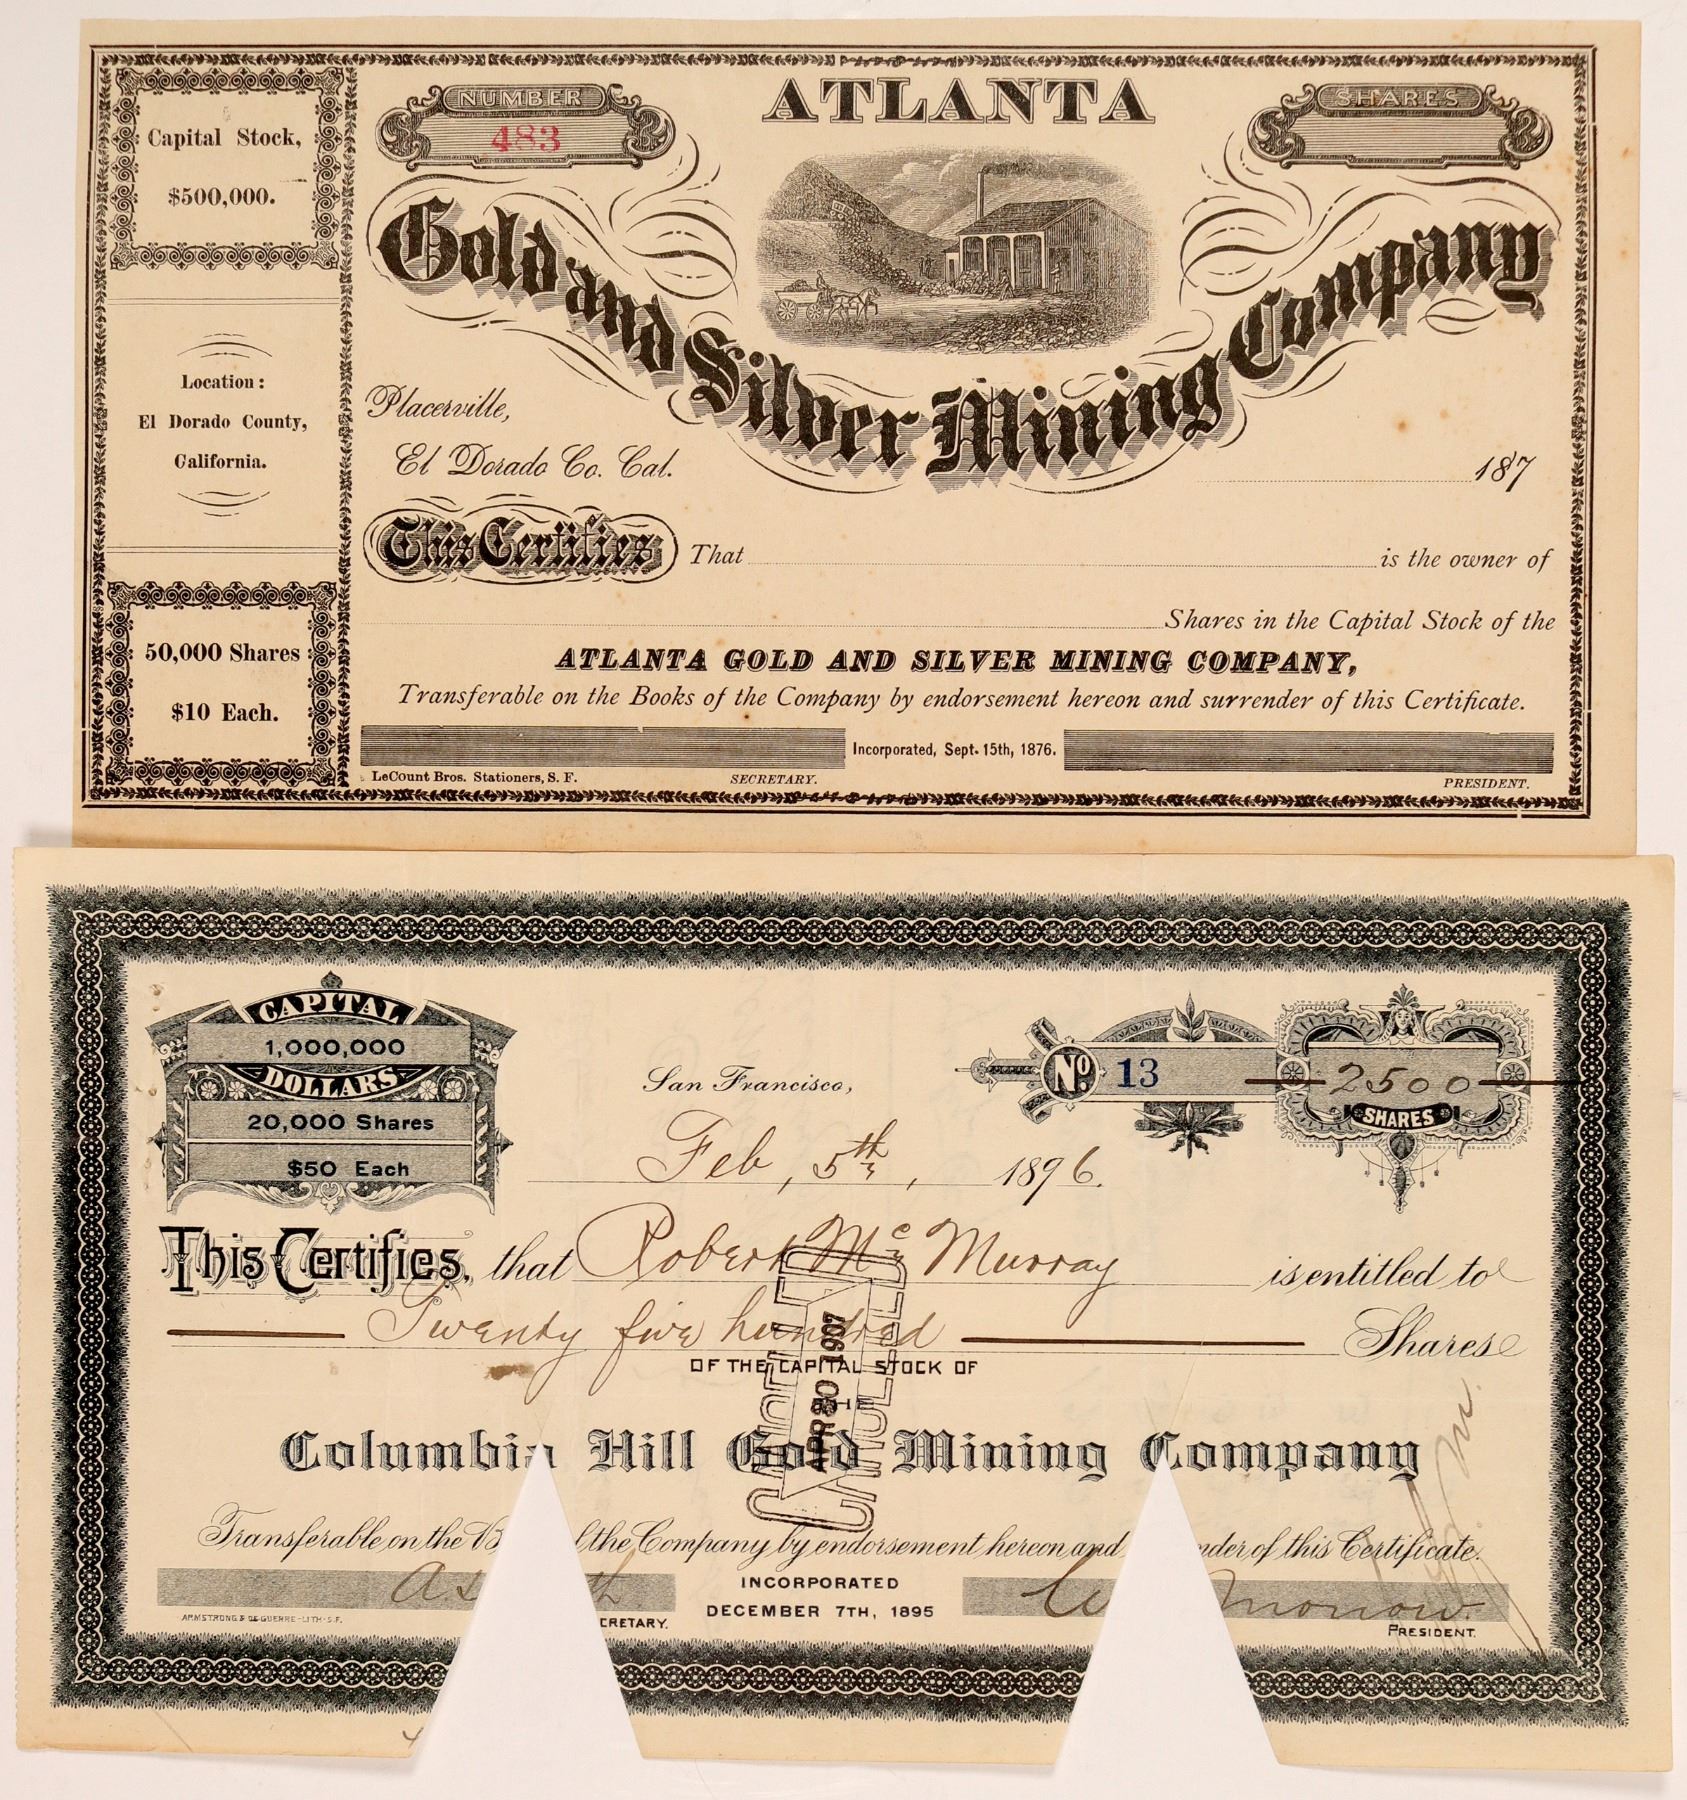 ATLANTA
NUMBER
483
SHARES
Capital Stock,
$500,000.
Gold and Silver Mining Company
Location:
El Dorado County,
California.
Placerville,
El Dorado Co. Cal.
187
This Certifies That is the owner of
Shares in the Capital Stock of the
50,000 Shares
$10 Each.
ATLANTA GOLD AND SILVER MINING COMPANY,
Transferable on the Books of the Company by endorsement hereon and surrender of this Certificate.
Incorporated, Sept. 15th, 1876.
LeCount Bros. Stationers, S. F.
SECRETARY.
PRESIDENT.
CAPITAL
1,000,000
DOLLARS
20,000 Shares
$50 Each
San Francisco,
No. 13
2500
SHARES
Feb, 5th, 1896.
This Certifies, that Robert Mc Murray is entitled to
Twenty five hundred Shares
OF THE CAPITAL STOCK OF
THE
CANCELLED
APR 30 1907
CANCELLED
Columbia Hill Gold Mining Company
Transferable on the B the Company by endorsement hereon and nder of this Certificate.
INCORPORATED
DECEMBER 7TH, 1895
ARMSTRONG & DE GUERRE-LITH-S.F.
CRETARY.
Morrow.
PRESIDENT.